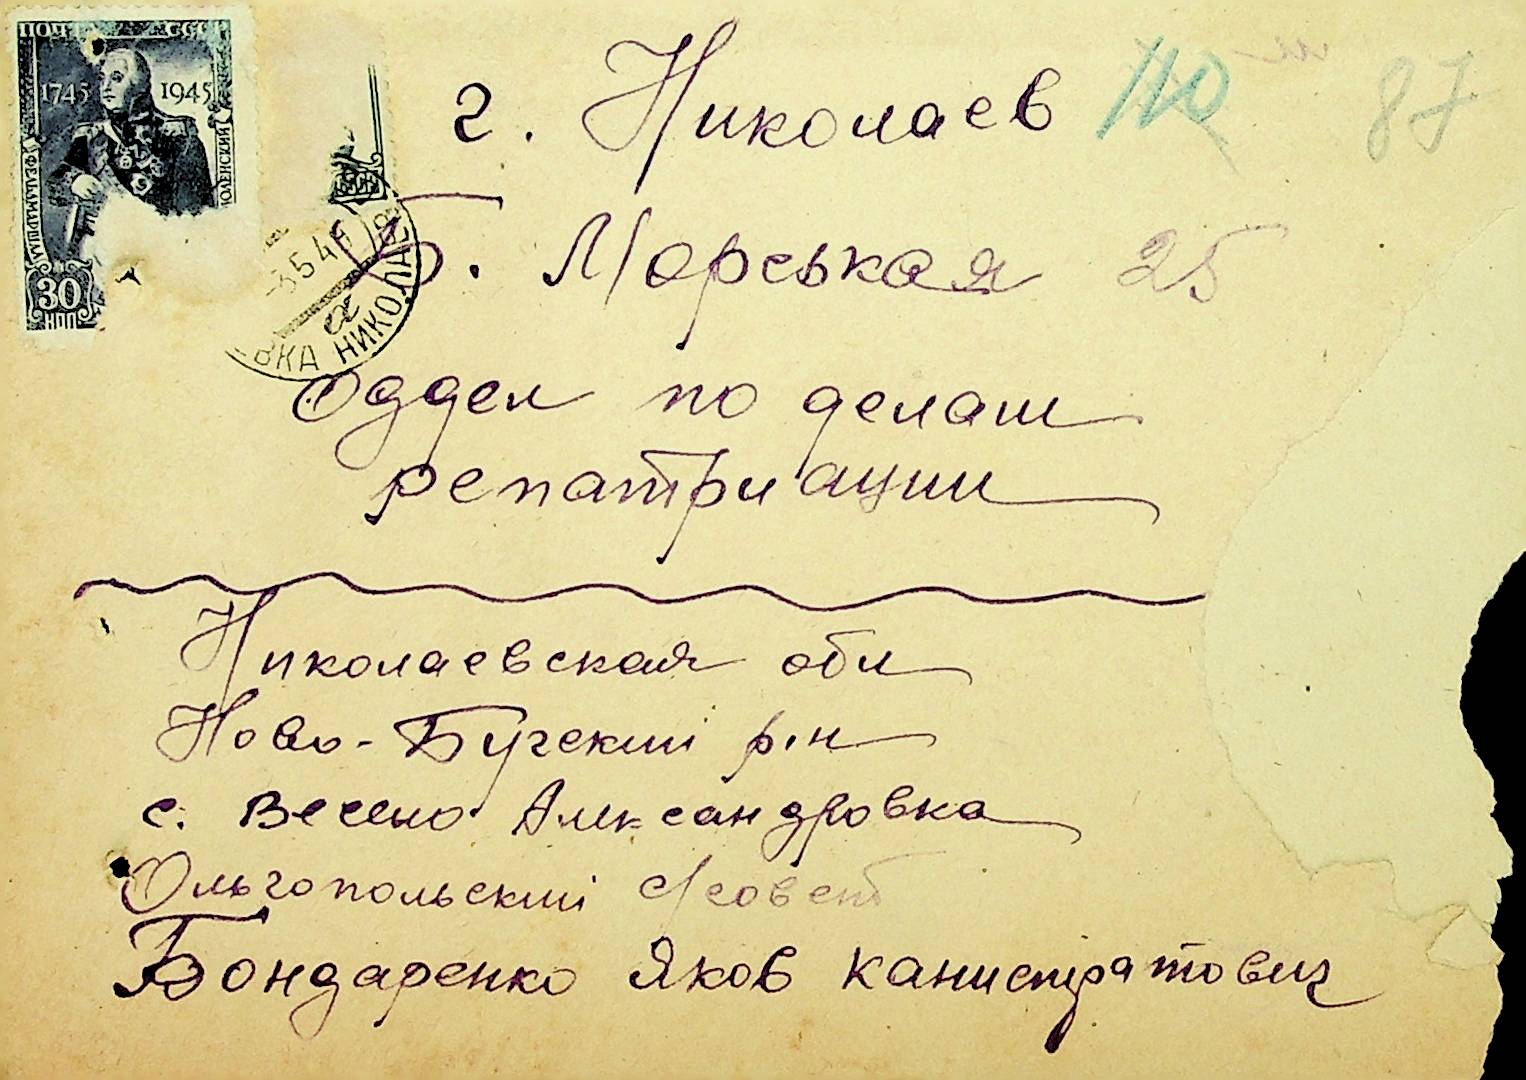 ПОЧТА СССР
1745 1945
ФЕЛЬДМАРШАЛ
ОЛЕНСКИЙ
30
КОП
-3.5.4
ВКА НИКОЛАЕВ
а
г. Николаев
110
87
Б. Морськая 25
Оддел по делам
репатриации
Николаевская обл
Ново-Бугский р.н
с. Весело Александровка
Ольгопольский с/совет
Бондаренко Яков Канистратович